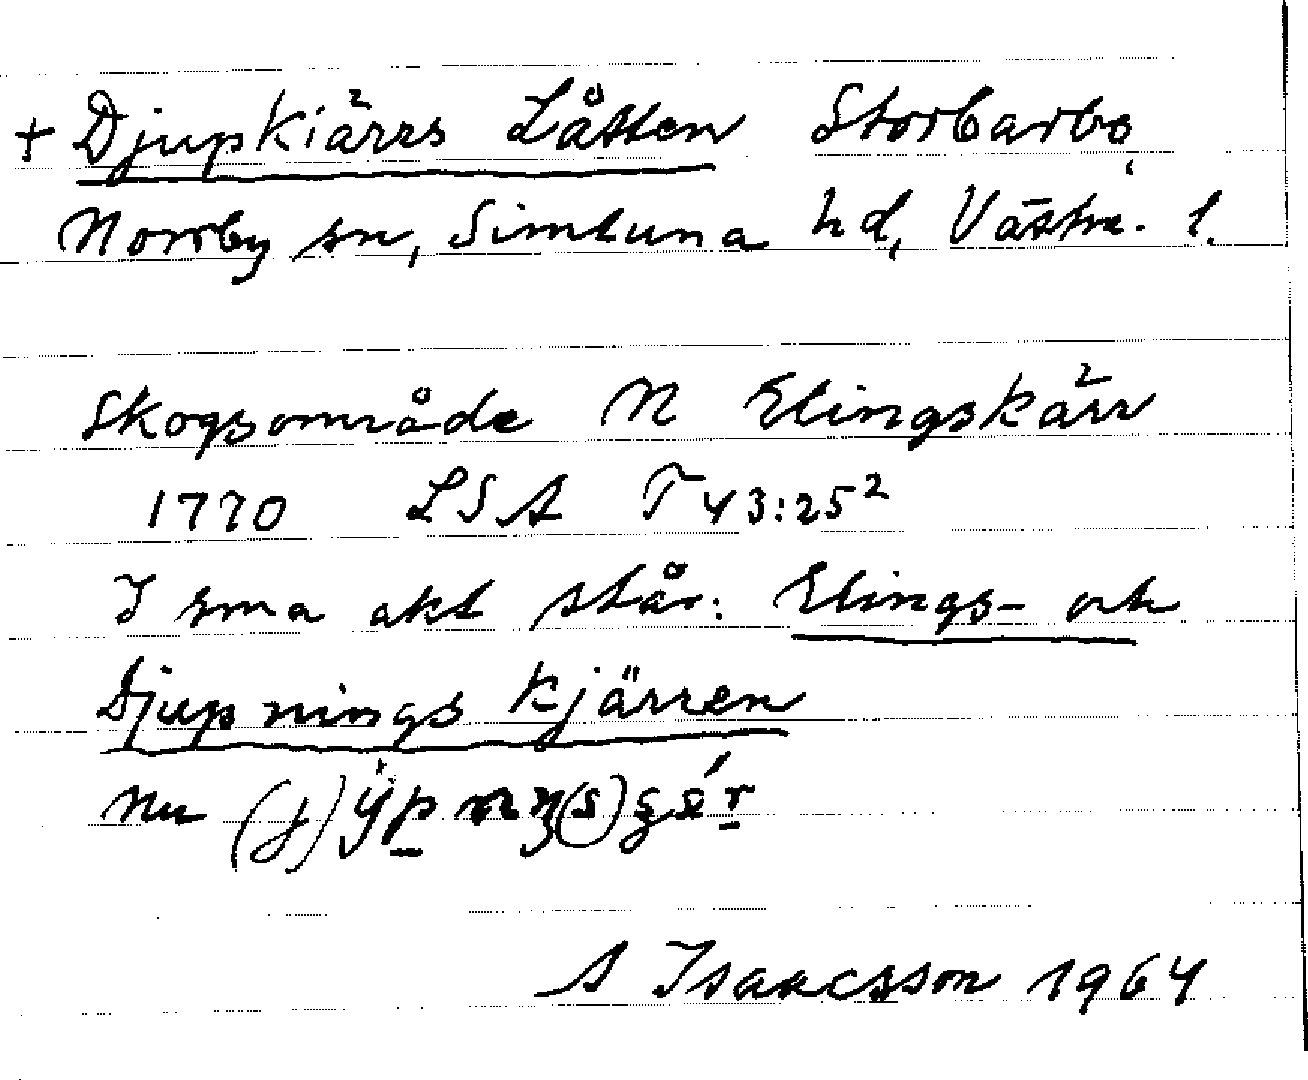 + Djupkiärrs Låtten Storbarbo,
Norrby sn, Simtuna hd, Västm. l.
Skogsområde N Elingskärr
1770 LSA T 43:25²
I sma akt står: Elings- och
Djupnings kjärren
nu
A Isaacsson 1964